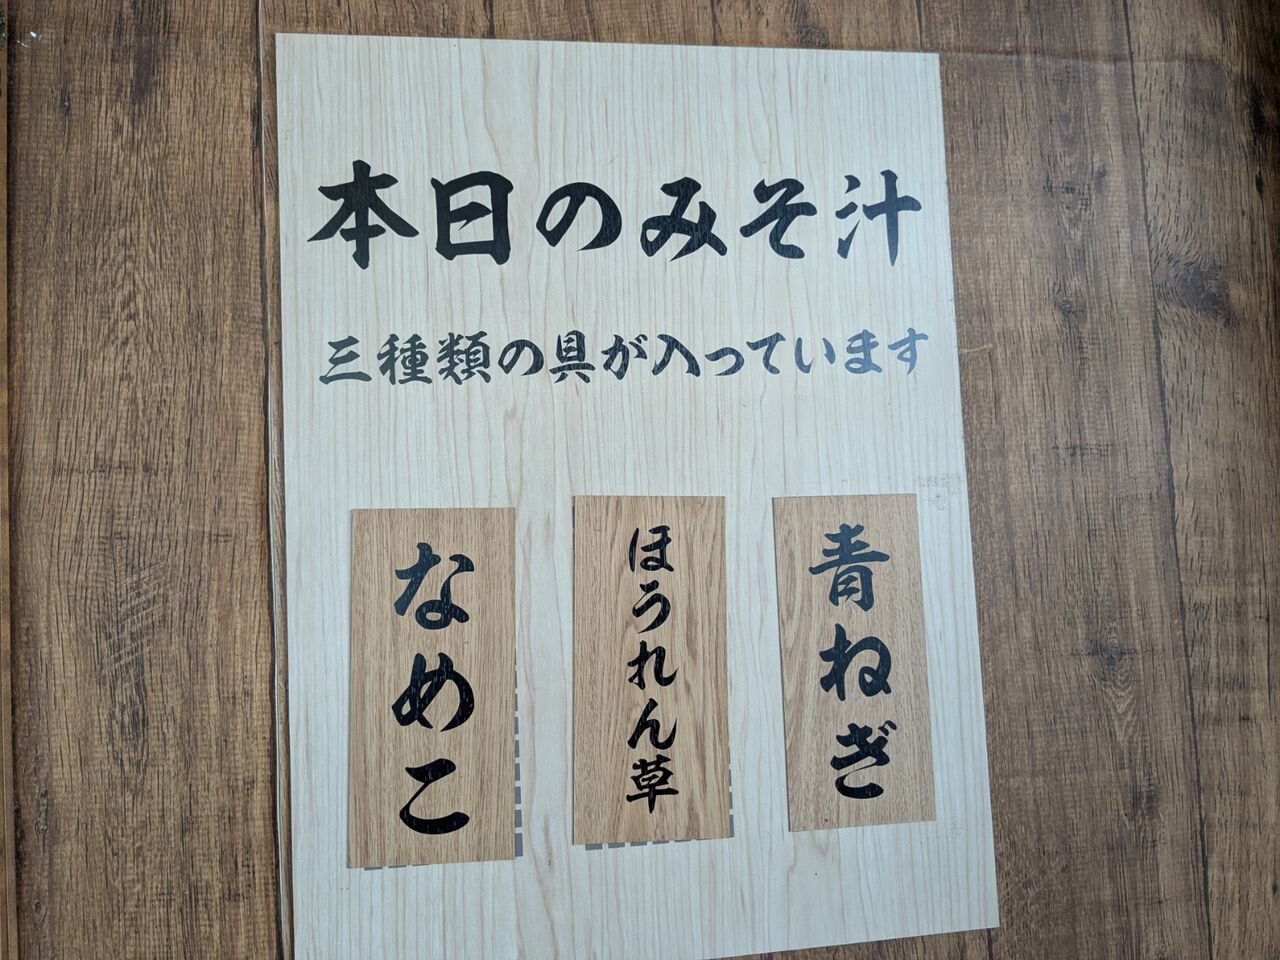 本日のみそ汁
三種類の具が入っています
青ねぎ
ほうれん草
なめこ